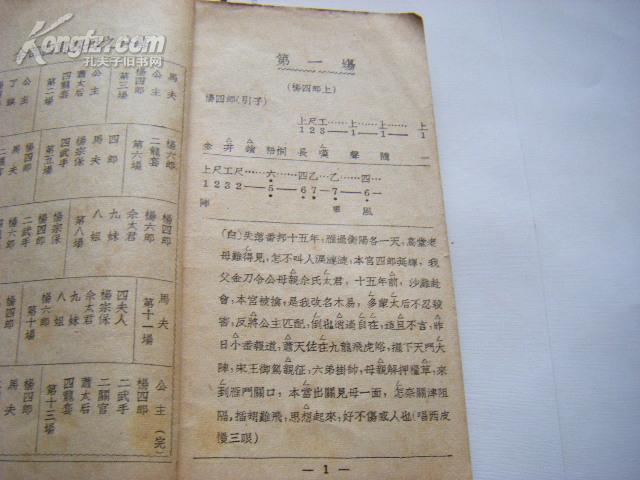 Kongfz.com
孔夫子旧书网
馬夫
公主
楊四郎
第三場
公主
蕭太后
四龍套
第二場
公主
楊六郎
二龍套
第六場
四郎
馬夫
楊宗保
四武手
第五場
楊四郎
楊四郎
楊六郎
楊宗保
第八場
佘太君
九妹
八姐
楊宗保
二武手
楊四郎
馬夫
第十一場
四夫人
楊宗保
佘太君
九妹
八姐
楊六郎
第十場
公主(完)
楊四郎
二武手
二國官
蕭太后
四龍套
第十三場
公主
楊四郎
馬夫
第一場
(楊四郎上)
楊四郎(引子)
上尺工—上—上— 上
1 2 3—1—1— 1
金井鎖梧桐長嘆聲隨一
上尺工尺—六—四乙—乙—四—
1 2 3 2—5—6 7—7—6—
陣 風
(白)失落番邦十五年,雁過衡陽各一天,高堂老
母難得見,怎不叫人淚漣漣,本宮四郎延輝,我
父金刀令公母親佘氏太君,十五年前,沙灘赴
會,本宮被擒,是我改名木易,多蒙太后不忍殺
害,反將公主匹配,倒也逍遙自在,這且不言,昨
日小番報道,蕭天佐在九龍飛虎峪,擺下天門大
陣,宋王御駕親征,六弟掛帥,母親解押糧草,來
到雁門關口,本當出關見母一面,怎奈關津阻
隔,插翅難飛,思想起來,好不傷感人也(唱西皮
慢三眼)
— 1 —